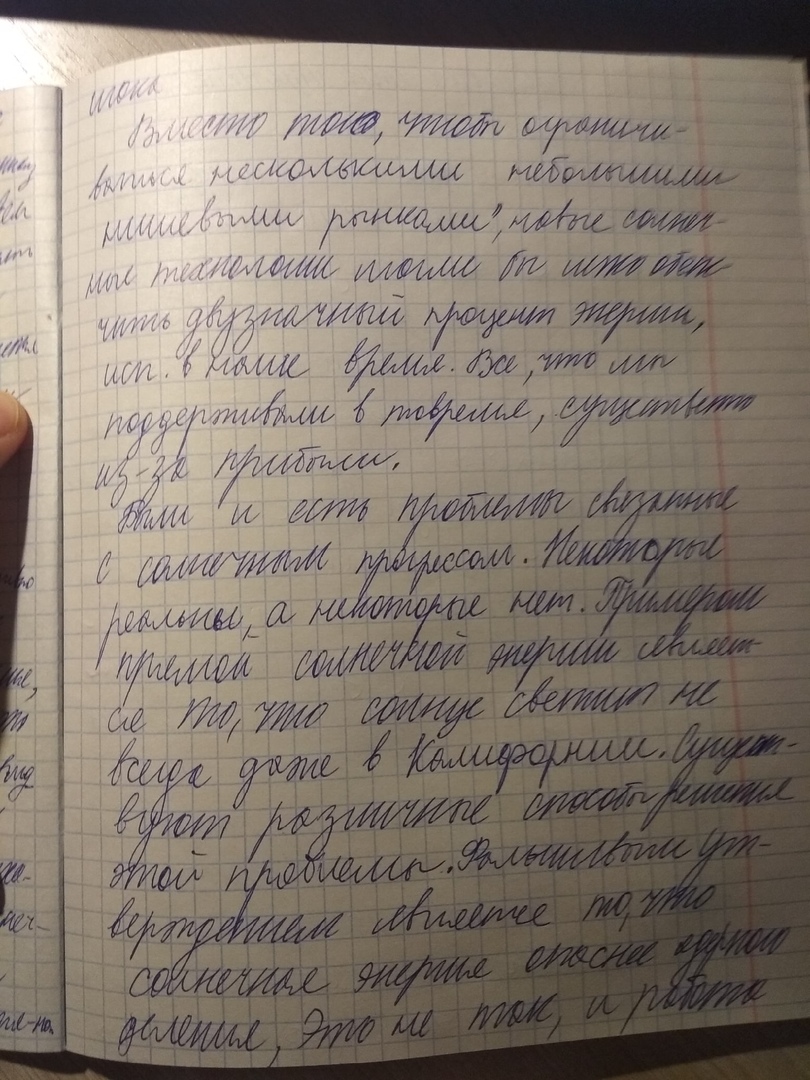 шока
Вместо того, чтобы ограничи-
ваться несколькими небольшими
нишевыми рынками", новые солнеч-
ные технологии могли бы легко обеспе-
чить двузначный процент энергии,
исп. в наше время. Все, что мы
поддерживали в товремя, существенно
из-за прибыли.
Были и есть проблемы связанные
с солнечным прогрессом. Некоторые
реальны, а некоторые нет. Примером
прямой солнечной энергии являет-
ся то, что солнце светит не
всегда даже в Калифорнии. Сущест-
вуют различные способы решения
этой проблемы. Фальшивым ут-
верждением является то, что
солнечная энергия опаснее ядерного
деления, Это не так, и работа